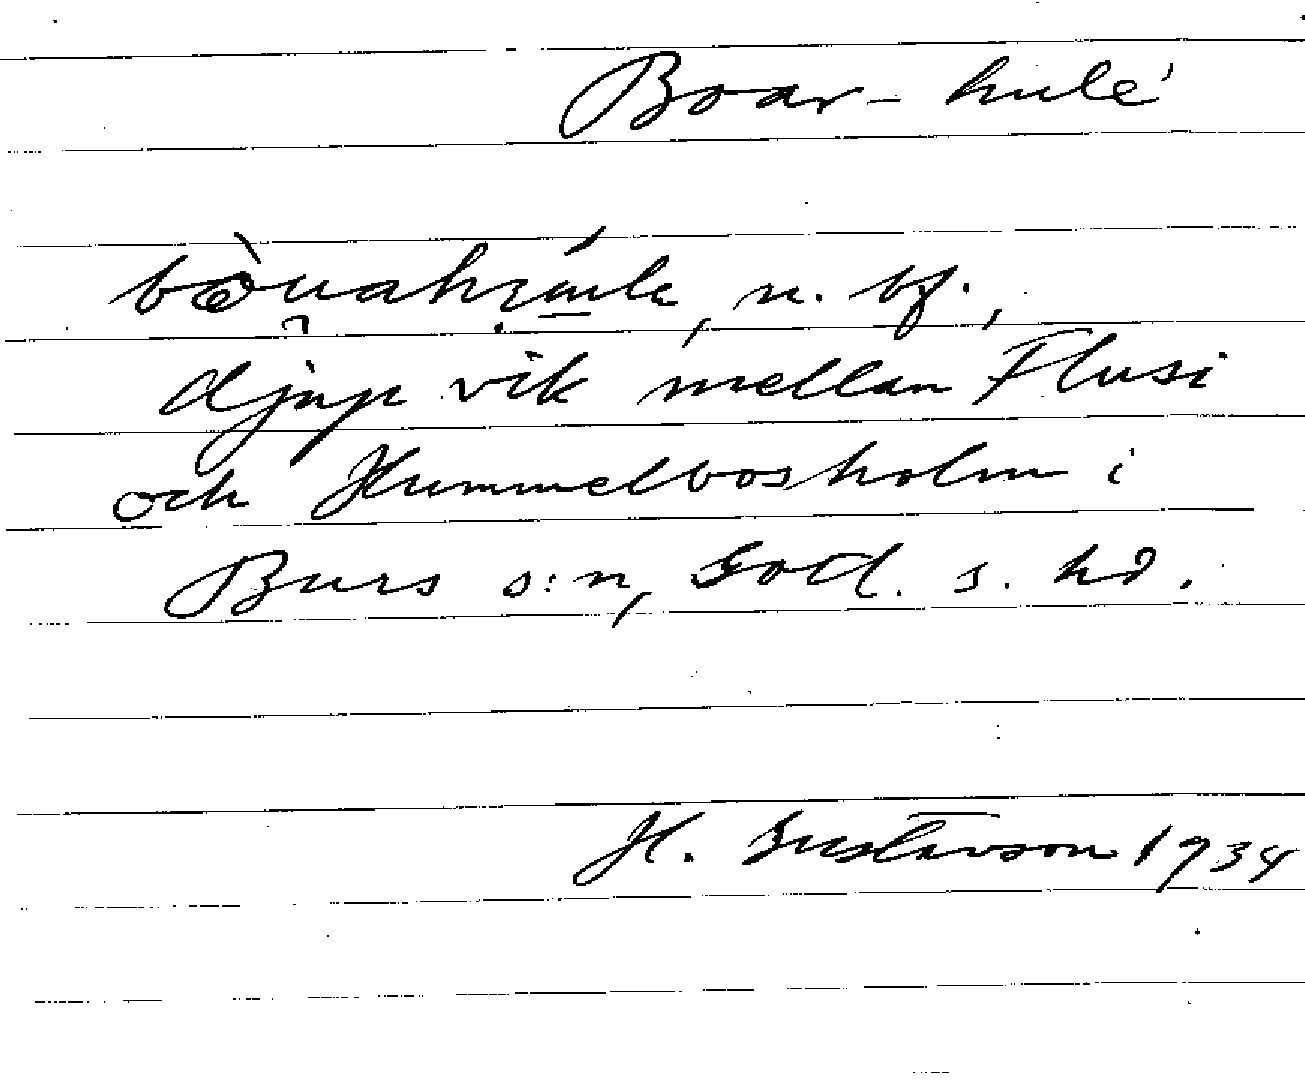 Boar-hule'
n. bf.,
djup vik mellan Flusi
och Hummelbosholm i
Burs s:n, Gotl. s. hd.
H. Gustavson 1934